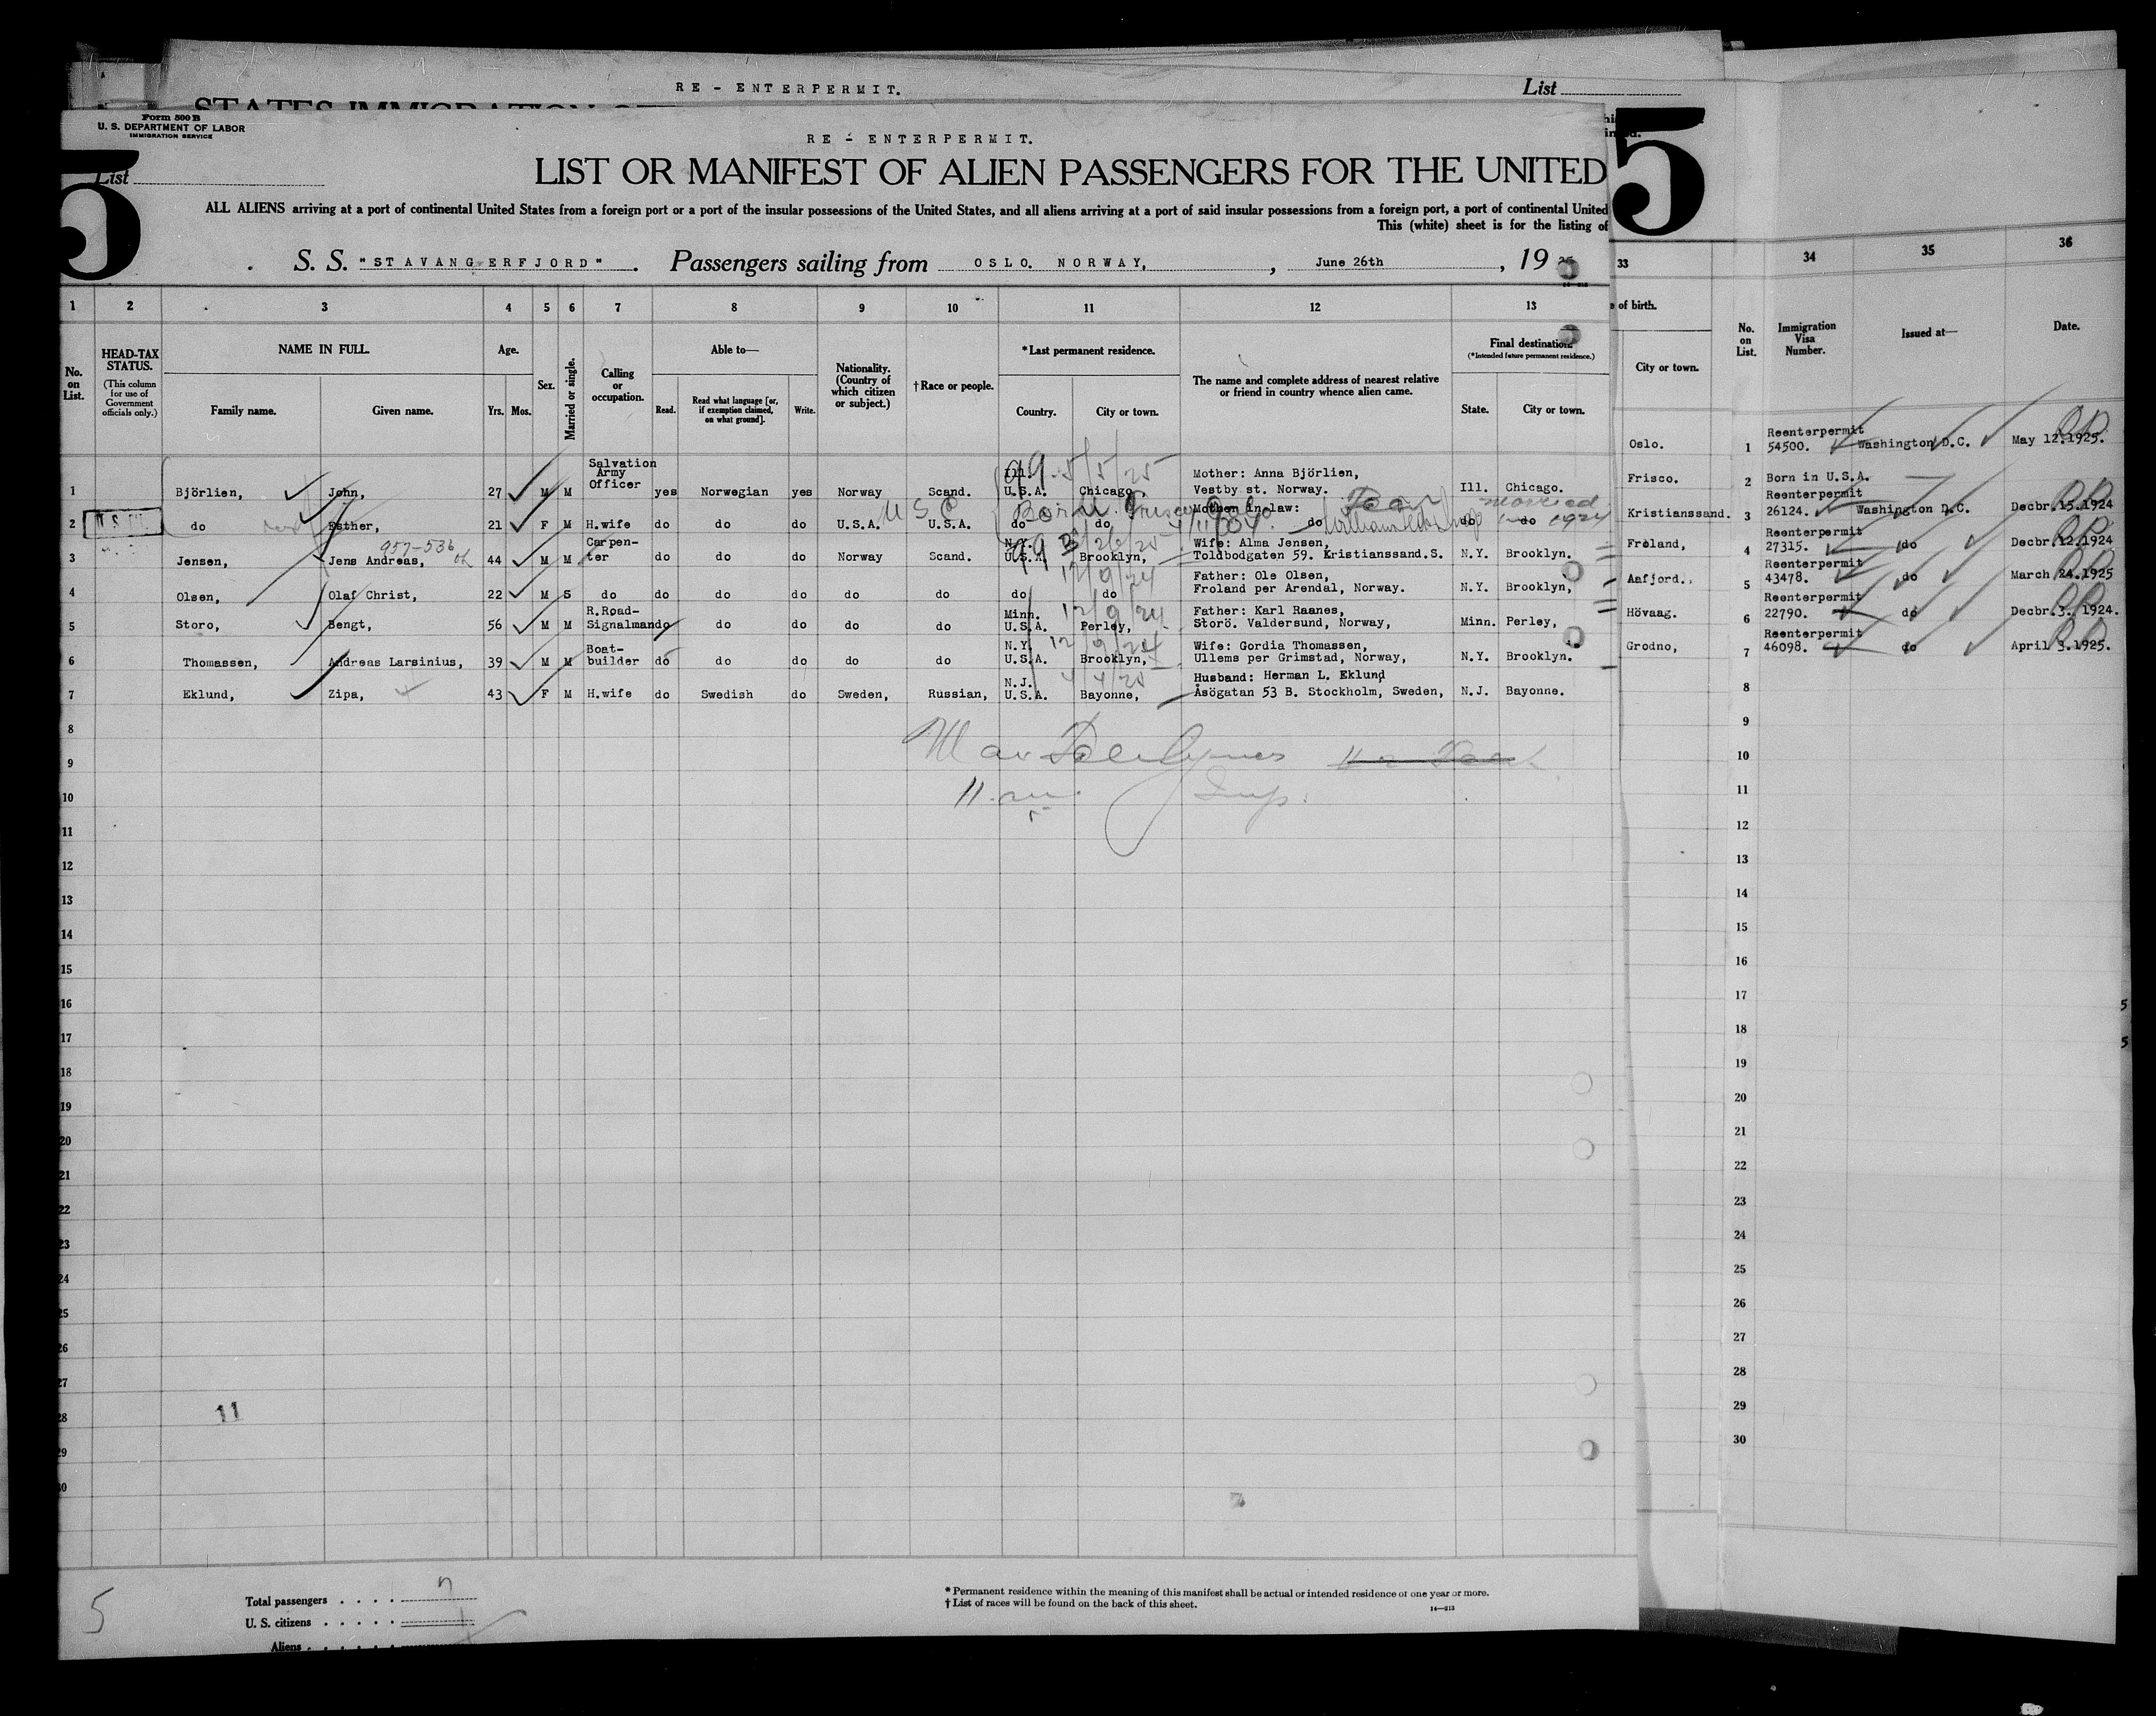 RE - ENTERPERMIT.
List
Form 500 B
U. S. DEPARTMENT OF LABOR
IMMIGRATION SERVICE
RE - ENTERPERMIT.
5
List
LIST OR MANIFEST OF ALIEN PASSENGERS FOR THE UNITED
5
ALL ALIENS arriving at a port of continental United States from a foreign port or a port of the insular possessions of the United States, and all aliens arriving at a port of said insular possessions from a foreign port, a port of continental United
This (white) sheet is for the listing of
S. S. "STAVANGERFJORD". Passengers sailing from OSLO. NORWAY, , June 26th , 19
1 2 3 4 5 6 7 8 9 10 11 12 13
No. on List.
HEAD-TAX STATUS.
(This column for use of Government officials only.)
NAME IN FULL.
Family name. Given name.
Age.
Yrs. Mos.
Sex.
Married or single.
Calling or occupation.
Able to—
Read. Read what language [or, if exemption claimed, on what ground]. Write.
Nationality. (Country of which citizen or subject.)
†Race or people.
*Last permanent residence.
Country. City or town.
The name and complete address of nearest relative or friend in country whence alien came.
Final destination.
(*Intended future permanent residence.)
State. City or town.
1 Björlien, John, 27 M M Salvation Army Officer yes Norwegian yes Norway Scand. Ill. U.S.A. Chicago. Mother: Anna Björlien, Vestby st. Norway. Ill. Chicago.
5/5/25
2 do Esther, 21 F M H.wife do do do U.S.A. U.S.A. do do Mother in law: do do do
USC
Born
married
1924
3 Jensen, Jens Andreas, 44 M M Carpenter do do do Norway Scand. N.Y. U.S.A. Brooklyn, Wife: Alma Jensen, Toldbodgaten 59. Kristianssand.S. N.Y. Brooklyn.
957-536
4 Olsen, Olaf Christ, 22 M S do do do do do do do do Father: Ole Olsen, Froland per Arendal, Norway. N.Y. Brooklyn,
12/9/24
5 Storo, Bengt, 56 M M R.Road-Signalman do do do do do Minn. U.S.A. Perley, Father: Karl Raanes, Storö. Valdersund, Norway, Minn. Perley,
12/9/24
6 Thomassen, Andreas Larsinius, 39 M M Boat-builder do do do do do N.Y. U.S.A. Brooklyn, Wife: Gordia Thomassen, Ullems per Grimstad, Norway, N.Y. Brooklyn.
12/9/24
7 Eklund, Zipa, 43 F M H.wife do Swedish do Sweden, Russian, N.J. U.S.A. Bayonne, Husband: Herman L. Eklund Åsögatan 53 B. Stockholm, Sweden, N.J. Bayonne.
8
9
10
11
12
13
14
15
16
17
18
19
20
21
22
23
24
25
26
27
28
29
30
11
5
Total passengers
U. S. citizens
Aliens
* Permanent residence within the meaning of this manifest shall be actual or intended residence of one year or more.
† List of races will be found on the back of this sheet.
14—213
33
of birth.
City or town.
Oslo.
Frisco.
Kristianssand.
Fröland,
Aafjord.
Hövaag.
Grodno,
34 35 36
No. on List.
Immigration Visa Number.
Issued at—
Date.
1 Reenterpermit 54500. Washington D.C. May 12.1925.
2 Born in U.S.A.
3 Reenterpermit 26124. Washington D.C. Decbr.15.1924
4 Reenterpermit 27315. do Decbr.12.1924
5 Reenterpermit 43478. do March 24.1925
6 Reenterpermit 22790. do Decbr.3. 1924.
7 Reenterpermit 46098. do April 3.1925.
8
9
10
11
12
13
14
15
16
17
18
19
20
21
22
23
24
25
26
27
28
29
30
5
5